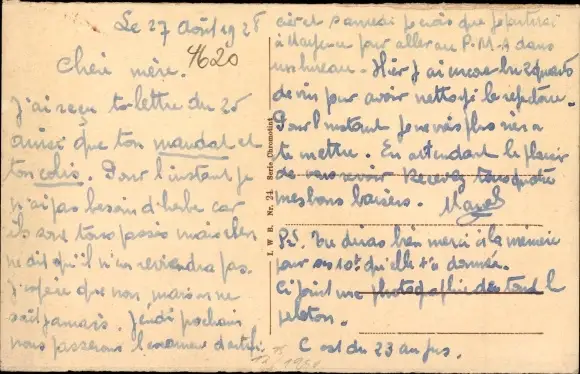 Le 27 Août 1928
4620
Chère mère.
J'ai reçu ta lettre du 25
ainsi que ton mandat et
ton colis. Pour l'instant je
n'ai pas besoin d'herbe car
ils sont tous passés mais rien
ne dit qu'il n'en reviendra pas.
J'espère que non, mais on ne
sait jamais. Jeudi prochain
nous passerons l'examen
et samedi je crois que je partirai
à Mayence pour aller au P.M.A dans
un bureau. Hier j'ai encore bu 2 quarts
de vin pour avoir nettoyé le réfectoire.
Pour l'instant je ne vois plus rien a
te mettre. En attendant le plaisir
de vous revoir Recevez tous quatre
mes bons baisers. Marcel
PS. Tu diras bien merci à la mémère
pour ses 10f qu'elle t'a donnée.
Ci joint une photographie de tout le
peloton.
C est du 23 au jus.
I. W. B. Nr. 24 Serie Chromotint